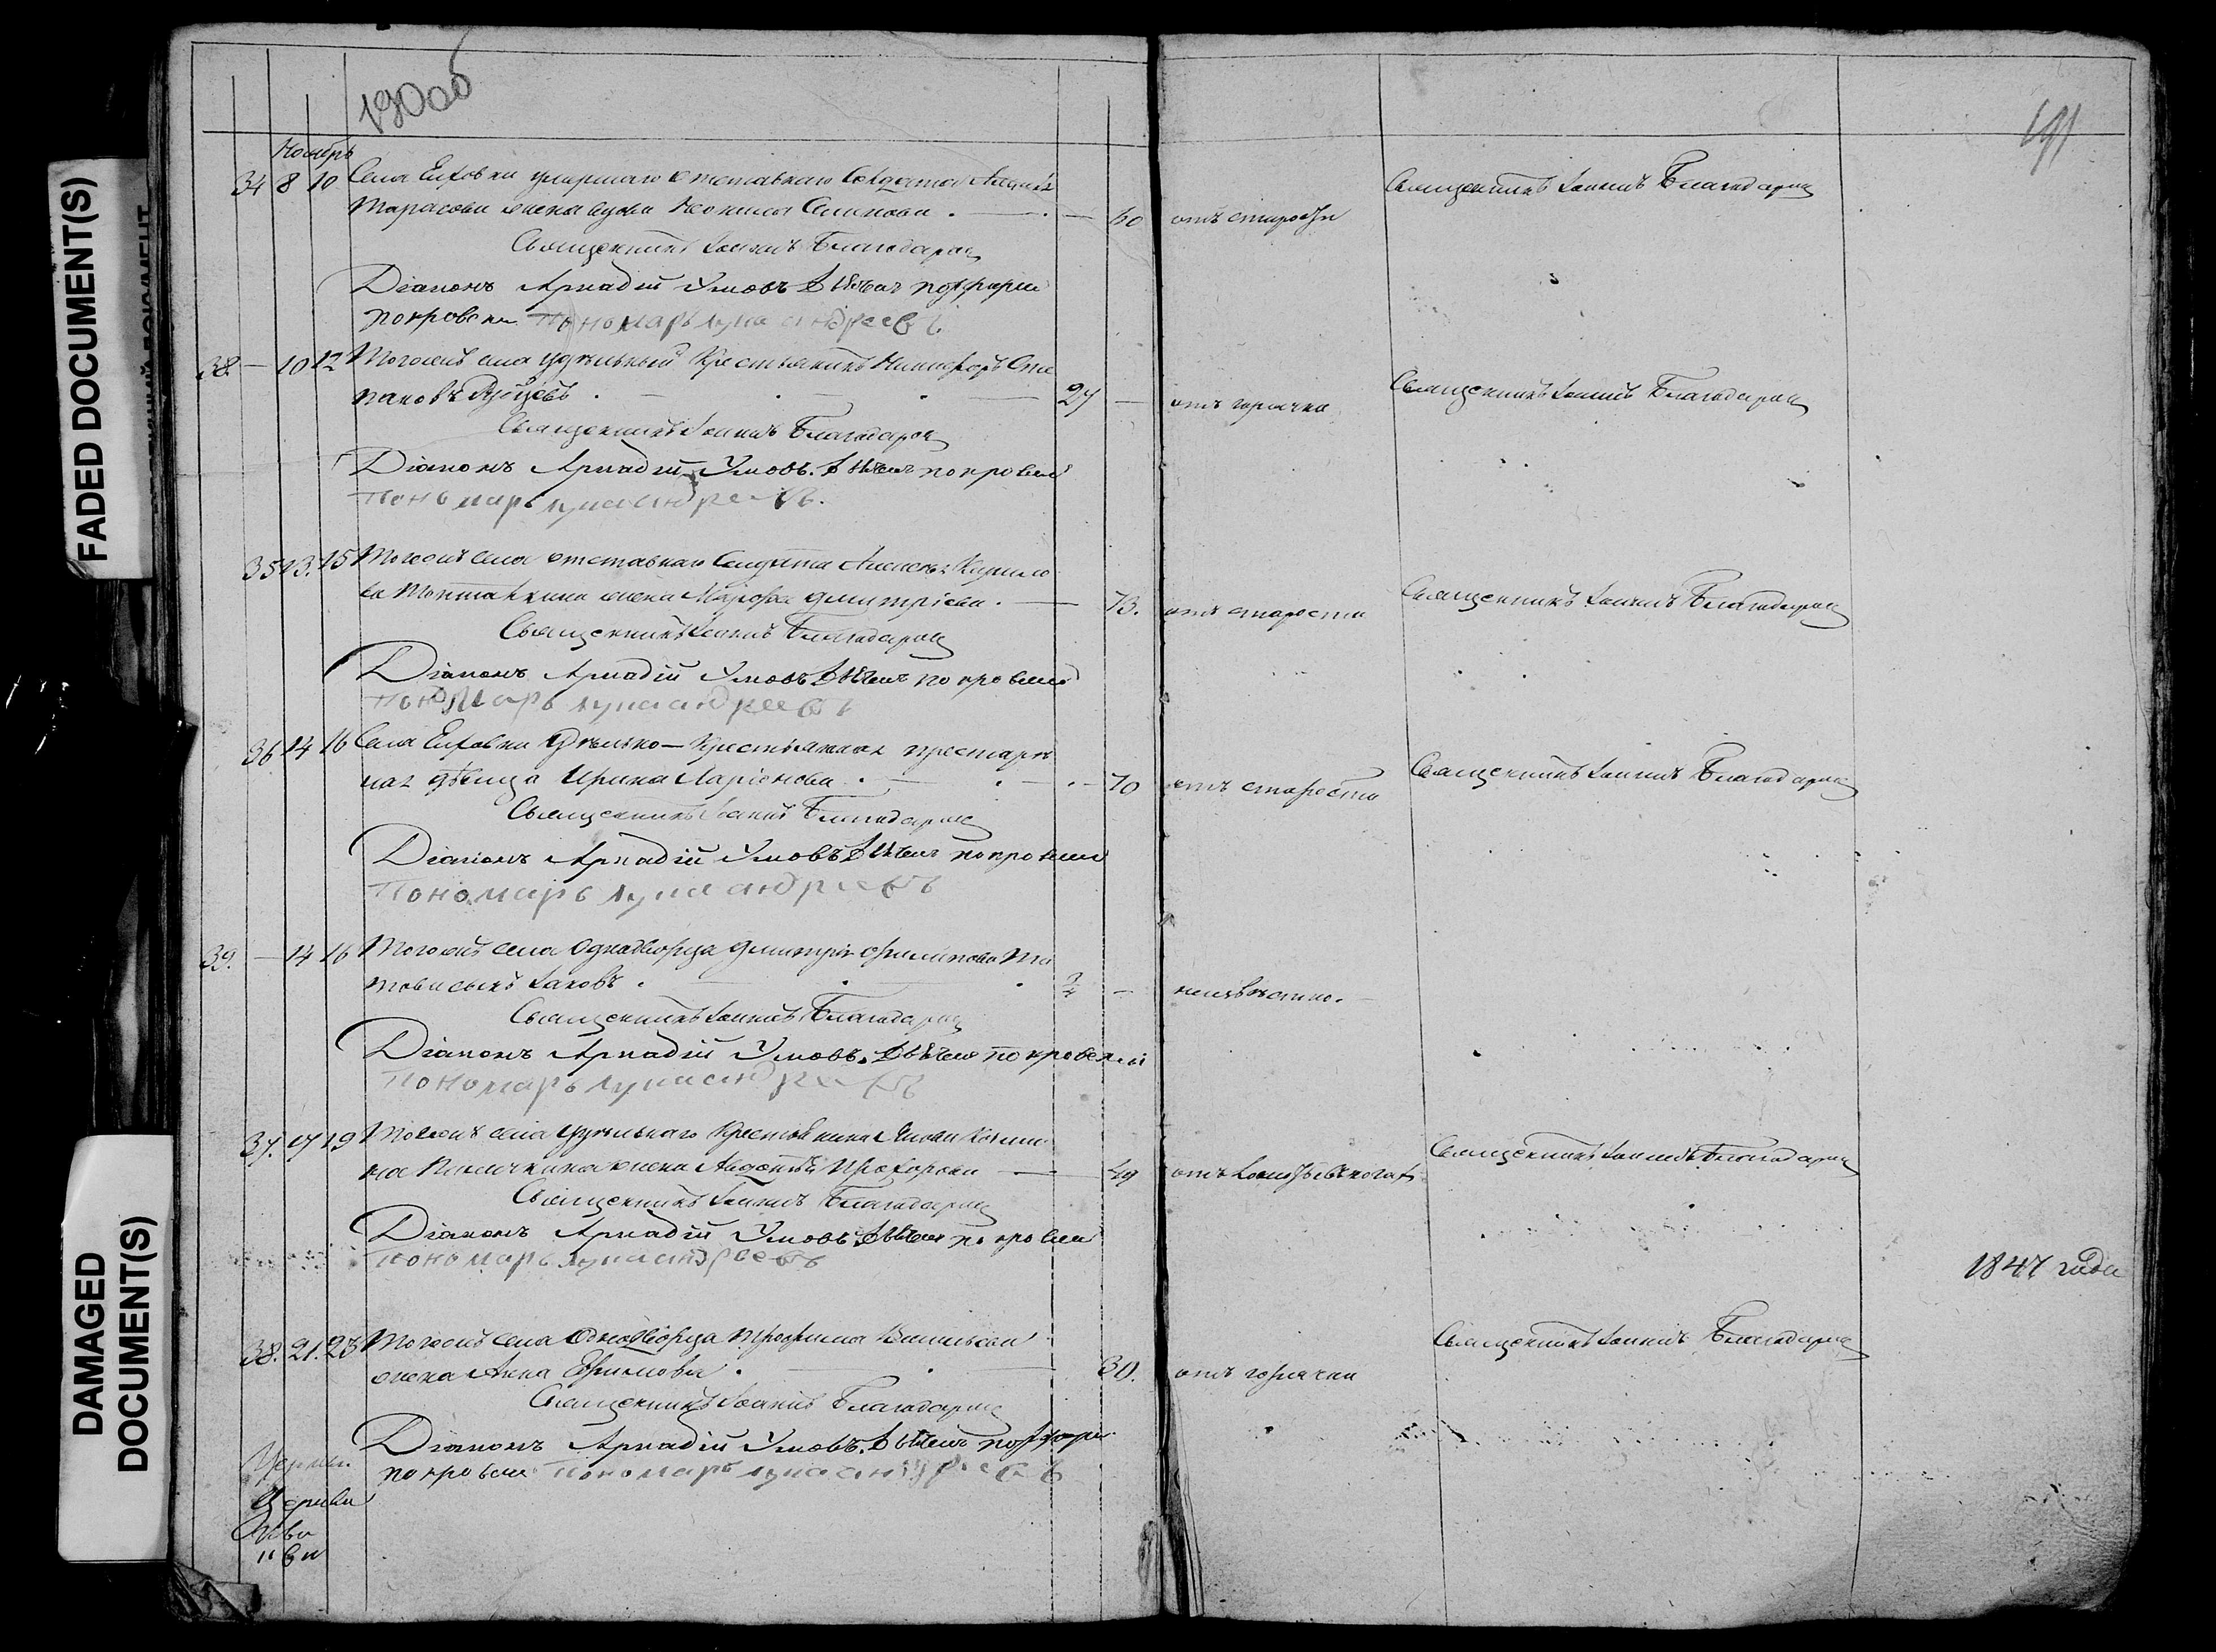 190об
191
Ноябрь
34 8 10 Села Елховки умершаго отставнаго Солдата
Тарасова жена вдова Неонила Семенова. — 60 отъ старости Священникъ Іоаннъ Благодаровъ
Священникъ Іоаннъ Благодаровъ
Діаконъ Аркадій Умовъ. Дьячекъ Порфирій
Покровскій Пономарь Лука Андреевъ
38. — 10 12 Тогожъ села удѣльный Крестьянинъ Никифоръ Сте
пановъ 27 — отъ горячки Священникъ Іоаннъ Благодаровъ
Священникъ Іоаннъ Благодаровъ
Діаконъ Аркадій Умовъ. Дьячекъ Покровскій
Пономарь Лука Андреевъ.
35 13. 15 Тогожъ села отставнаго Солдата Алексѣя Кирило
ва жена Марфа Дмитріева. — 73. отъ старости Священникъ Іоаннъ Благодаровъ
Священникъ Іоаннъ Благодаровъ
Діаконъ Аркадій Умовъ. Дьячекъ Покровскій
Пономарь Лука Андреевъ
36 14 16 Села Елховки Удѣльно-Крестьянская престарѣ
лая дѣвица Ирина Ларіонова. — 70 отъ старости Священникъ Іоаннъ Благодаровъ
Священникъ Іоаннъ Благодаровъ
Діаконъ Аркадій Умовъ. Дьячекъ Покровскій
Пономарь Лука Андреевъ
39. — 14 16 Тогожъ села Однодворца Дмитрія Филипова Ти
това сынъ Іаковъ. 3/4 — неизвѣстно.
Священникъ Іоаннъ Благодаровъ
Діаконъ Аркадій Умовъ. Дьячекъ Покровскій
Пономарь Лука Андреевъ
37. 17 19 Тогожъ села удѣльнаго Крестьянина Якова
жена Авдотья Прохорова — 49 Священникъ Іоаннъ Благодаровъ
Священникъ Іоаннъ Благодаровъ
Діаконъ Аркадій Умовъ. Дьячекъ Покровскій
Пономарь Лука Андреевъ
1847 года
38. 21. 23 Тогожъ села Однодворца Трофима Васильева
жена Анна Ефимова. 30. отъ горячки Священникъ Іоаннъ Благодаровъ
Священникъ Іоаннъ Благодаровъ
Діаконъ Аркадій Умовъ. Дьячекъ Порфирій
Покровскій Пономарь Лука Андреевъ
Церкви
FADED DOCUMENT(S)
DAMAGED
DOCUMENT(S)